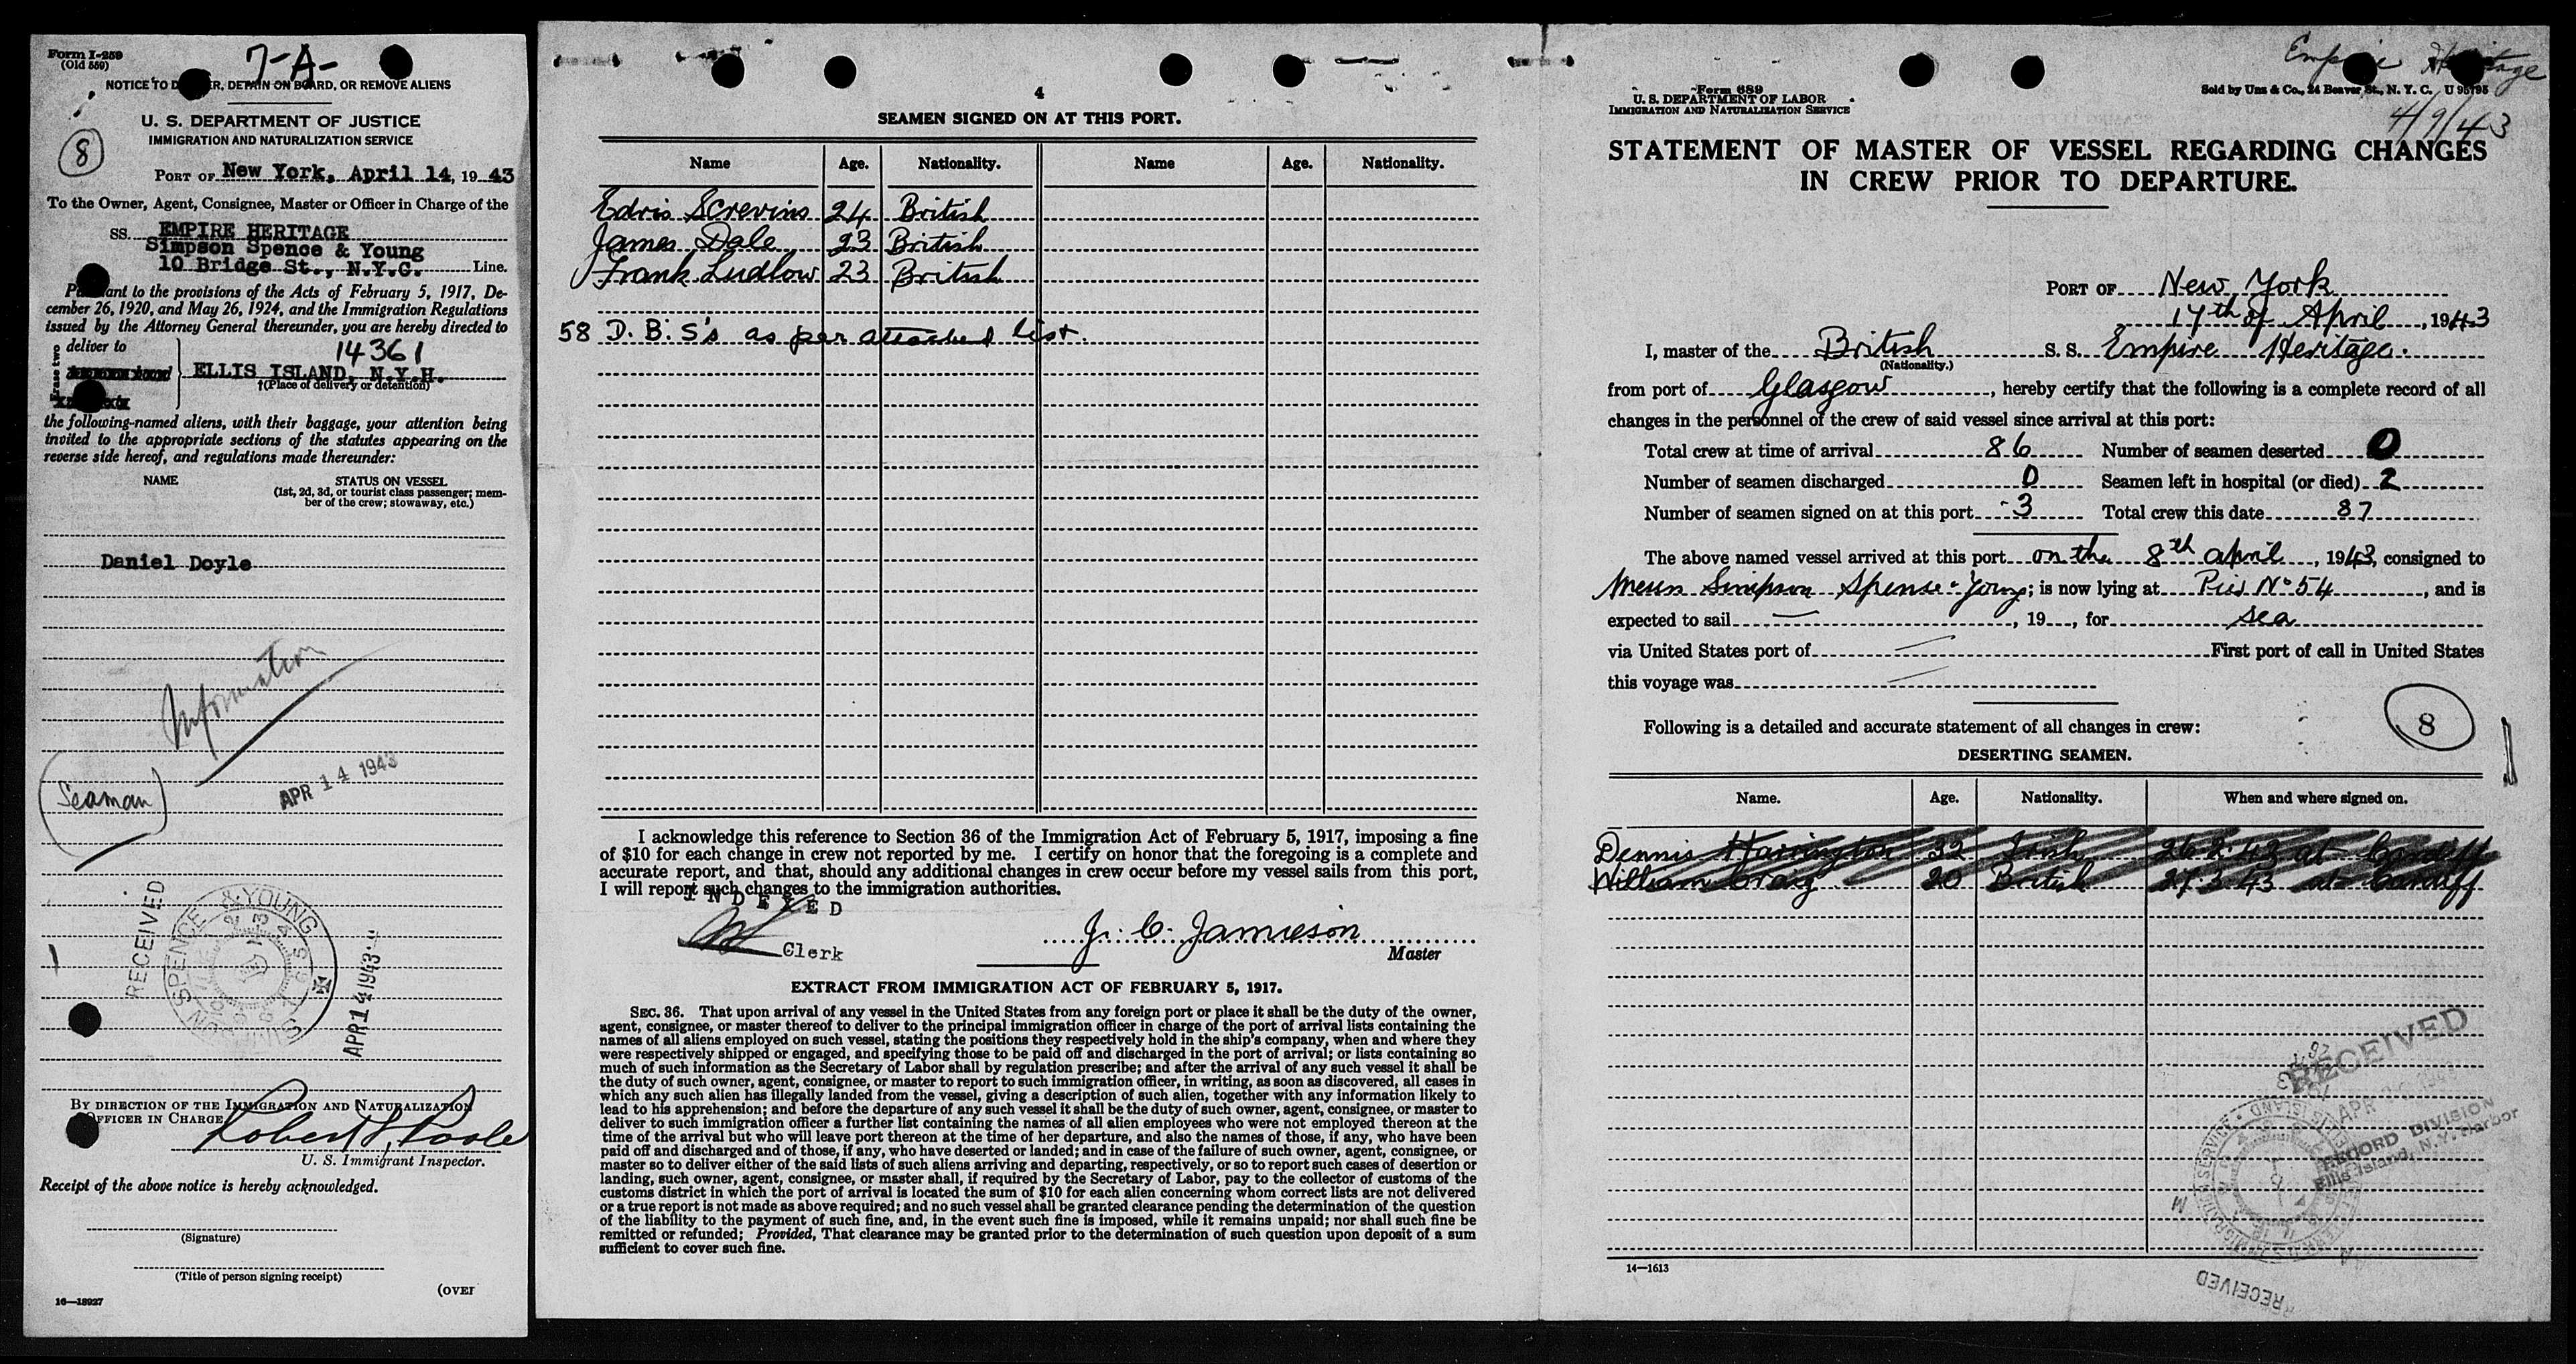 Form I-259
(Old 559)
7-A-
NOTICE TO DELIVER, DETAIN ON BOARD, OR REMOVE ALIENS
U. S. DEPARTMENT OF JUSTICE
IMMIGRATION AND NATURALIZATION SERVICE
8
PORT OF New York, April 14, 1943
To the Owner, Agent, Consignee, Master or Officer in Charge of the
SS. EMPIRE HERITAGE
Simpson Spence & Young
10 Bridge St., N.Y.C. Line.
Pursuant to the provisions of the Acts of February 5, 1917, De-
cember 26, 1920, and May 26, 1924, and the Immigration Regulations
issued by the Attorney General thereunder, you are hereby directed to
Erase two
deliver to
14361
ELLIS ISLAND, N.Y.H.
†(Place of delivery or detention)
the following-named aliens, with their baggage, your attention being
invited to the appropriate sections of the statutes appearing on the
reverse side hereof, and regulations made thereunder:
NAME STATUS ON VESSEL
(1st, 2d, 3d, or tourist class passenger; mem-
ber of the crew; stowaway, etc.)
Daniel Doyle
Information
(Seaman)
APR 14 1943
RECEIVED
SIMPSON SPENCE & YOUNG
APR 14 1943
BY DIRECTION OF THE IMMIGRATION AND NATURALIZATION
OFFICER IN CHARGE
Robert Poole
U. S. Immigrant Inspector.
Receipt of the above notice is hereby acknowledged.
(Signature)
(Title of person signing receipt)
(OVER
16—18927
4
SEAMEN SIGNED ON AT THIS PORT.
Name Age. Nationality. Name Age. Nationality.
Edris Screvins 24 British
James Dale 23 British
Frank Ludlow 23 British
58 D. B. S's as per attached list.
I acknowledge this reference to Section 36 of the Immigration Act of February 5, 1917, imposing a fine
of $10 for each change in crew not reported by me. I certify on honor that the foregoing is a complete and
accurate report, and that, should any additional changes in crew occur before my vessel sails from this port,
I will report such changes to the immigration authorities.
INDEXED
Clerk
J. C. Jamieson
Master
EXTRACT FROM IMMIGRATION ACT OF FEBRUARY 5, 1917.
SEC. 36. That upon arrival of any vessel in the United States from any foreign port or place it shall be the duty of the owner,
agent, consignee, or master thereof to deliver to the principal immigration officer in charge of the port of arrival lists containing the
names of all aliens employed on such vessel, stating the positions they respectively hold in the ship's company, when and where they
were respectively shipped or engaged, and specifying those to be paid off and discharged in the port of arrival; or lists containing so
much of such information as the Secretary of Labor shall by regulation prescribe; and after the arrival of any such vessel it shall be
the duty of such owner, agent, consignee, or master to report to such immigration officer, in writing, as soon as discovered, all cases in
which any such alien has illegally landed from the vessel, giving a description of such alien, together with any information likely to
lead to his apprehension; and before the departure of any such vessel it shall be the duty of such owner, agent, consignee, or master to
deliver to such immigration officer a further list containing the names of all alien employees who were not employed thereon at the
time of the arrival but who will leave port thereon at the time of her departure, and also the names of those, if any, who have been
paid off and discharged and of those, if any, who have deserted or landed; and in case of the failure of such owner, agent, consignee, or
master so to deliver either of the said lists of such aliens arriving and departing, respectively, or so to report such cases of desertion or
landing, such owner, agent, consignee, or master shall, if required by the Secretary of Labor, pay to the collector of customs of the
customs district in which the port of arrival is located the sum of $10 for each alien concerning whom correct lists are not delivered
or a true report is not made as above required; and no such vessel shall be granted clearance pending the determination of the question
of the liability to the payment of such fine, and, in the event such fine is imposed, while it remains unpaid; nor shall such fine be
remitted or refunded; Provided, That clearance may be granted prior to the determination of such question upon deposit of a sum
sufficient to cover such fine.
Empire Heritage
4/9/43
Form 689
U. S. DEPARTMENT OF LABOR
IMMIGRATION AND NATURALIZATION SERVICE
Sold by Unz & Co., 24 Beaver St., N. Y. C. U 95795
STATEMENT OF MASTER OF VESSEL REGARDING CHANGES
IN CREW PRIOR TO DEPARTURE.
PORT OF New York
17th of April, 1943
I, master of the British S. S. Empire Heritage.
(Nationality.)
from port of Glasgow, hereby certify that the following is a complete record of all
changes in the personnel of the crew of said vessel since arrival at this port:
Total crew at time of arrival 86 Number of seamen deserted 0
Number of seamen discharged 0 Seamen left in hospital (or died) 2
Number of seamen signed on at this port 3 Total crew this date 87
The above named vessel arrived at this port on the 8th april, 1943, consigned to
Messrs Simpson Spense & Young; is now lying at Pier No 54, and is
expected to sail —, 19__, for sea
via United States port of — First port of call in United States
this voyage was —
8
Following is a detailed and accurate statement of all changes in crew:
DESERTING SEAMEN.
Name. Age. Nationality. When and where signed on.
Dennis Harrington 32 Irish 26.2.43 at Cardiff
William Craig 20 British 27.3.43 at Cardiff
RECEIVED
RECORD DIVISION
Ellis Island, N.Y. Harbor
RECEIVED
14—1613